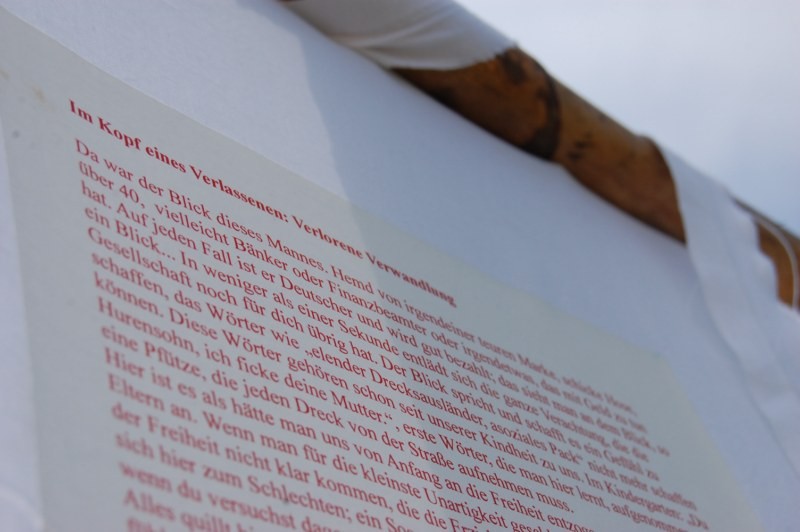 Im Kopf eines Verlassenen: Verlorene Verwandlung
Da war der Blick dieses Mannes. Hemd von irgendeiner teuren Marke, schicke Hose,
über 40, vielleicht Bänker oder Finanzbeamter oder irgendetwas, das mit Geld zu tun
hat. Auf jeden Fall ist er Deutscher und wird gut bezahlt; das sieht man an dem Blick, so
ein Blick... In weniger als einer Sekunde entlädt sich die ganze Verachtung, die die
Gesellschaft noch für dich übrig hat. Der Blick spricht und schafft es ein Gefühl zu
schaffen, das Wörter wie „elender Drecksausländer, asoziales Pack“ nicht mehr schaffen
können. Diese Wörter gehören schon seit unserer Kindheit zu uns. Im Kindergarten: „Du
Hurensohn, ich ficke deine Mutter.“, erste Wörter, die man hier lernt, aufgenommen
eine Pfütze, die jeden Dreck von der Straße aufnehmen muss.
Hier ist es als hätte man uns von Anfang an die Freiheit
Eltern an. Wenn man für die kleinste Unartigkeit
der Freiheit nicht klar kommen, die die
sich hier zum Schlechten; ein
wenn du versuchst
Alles quillt